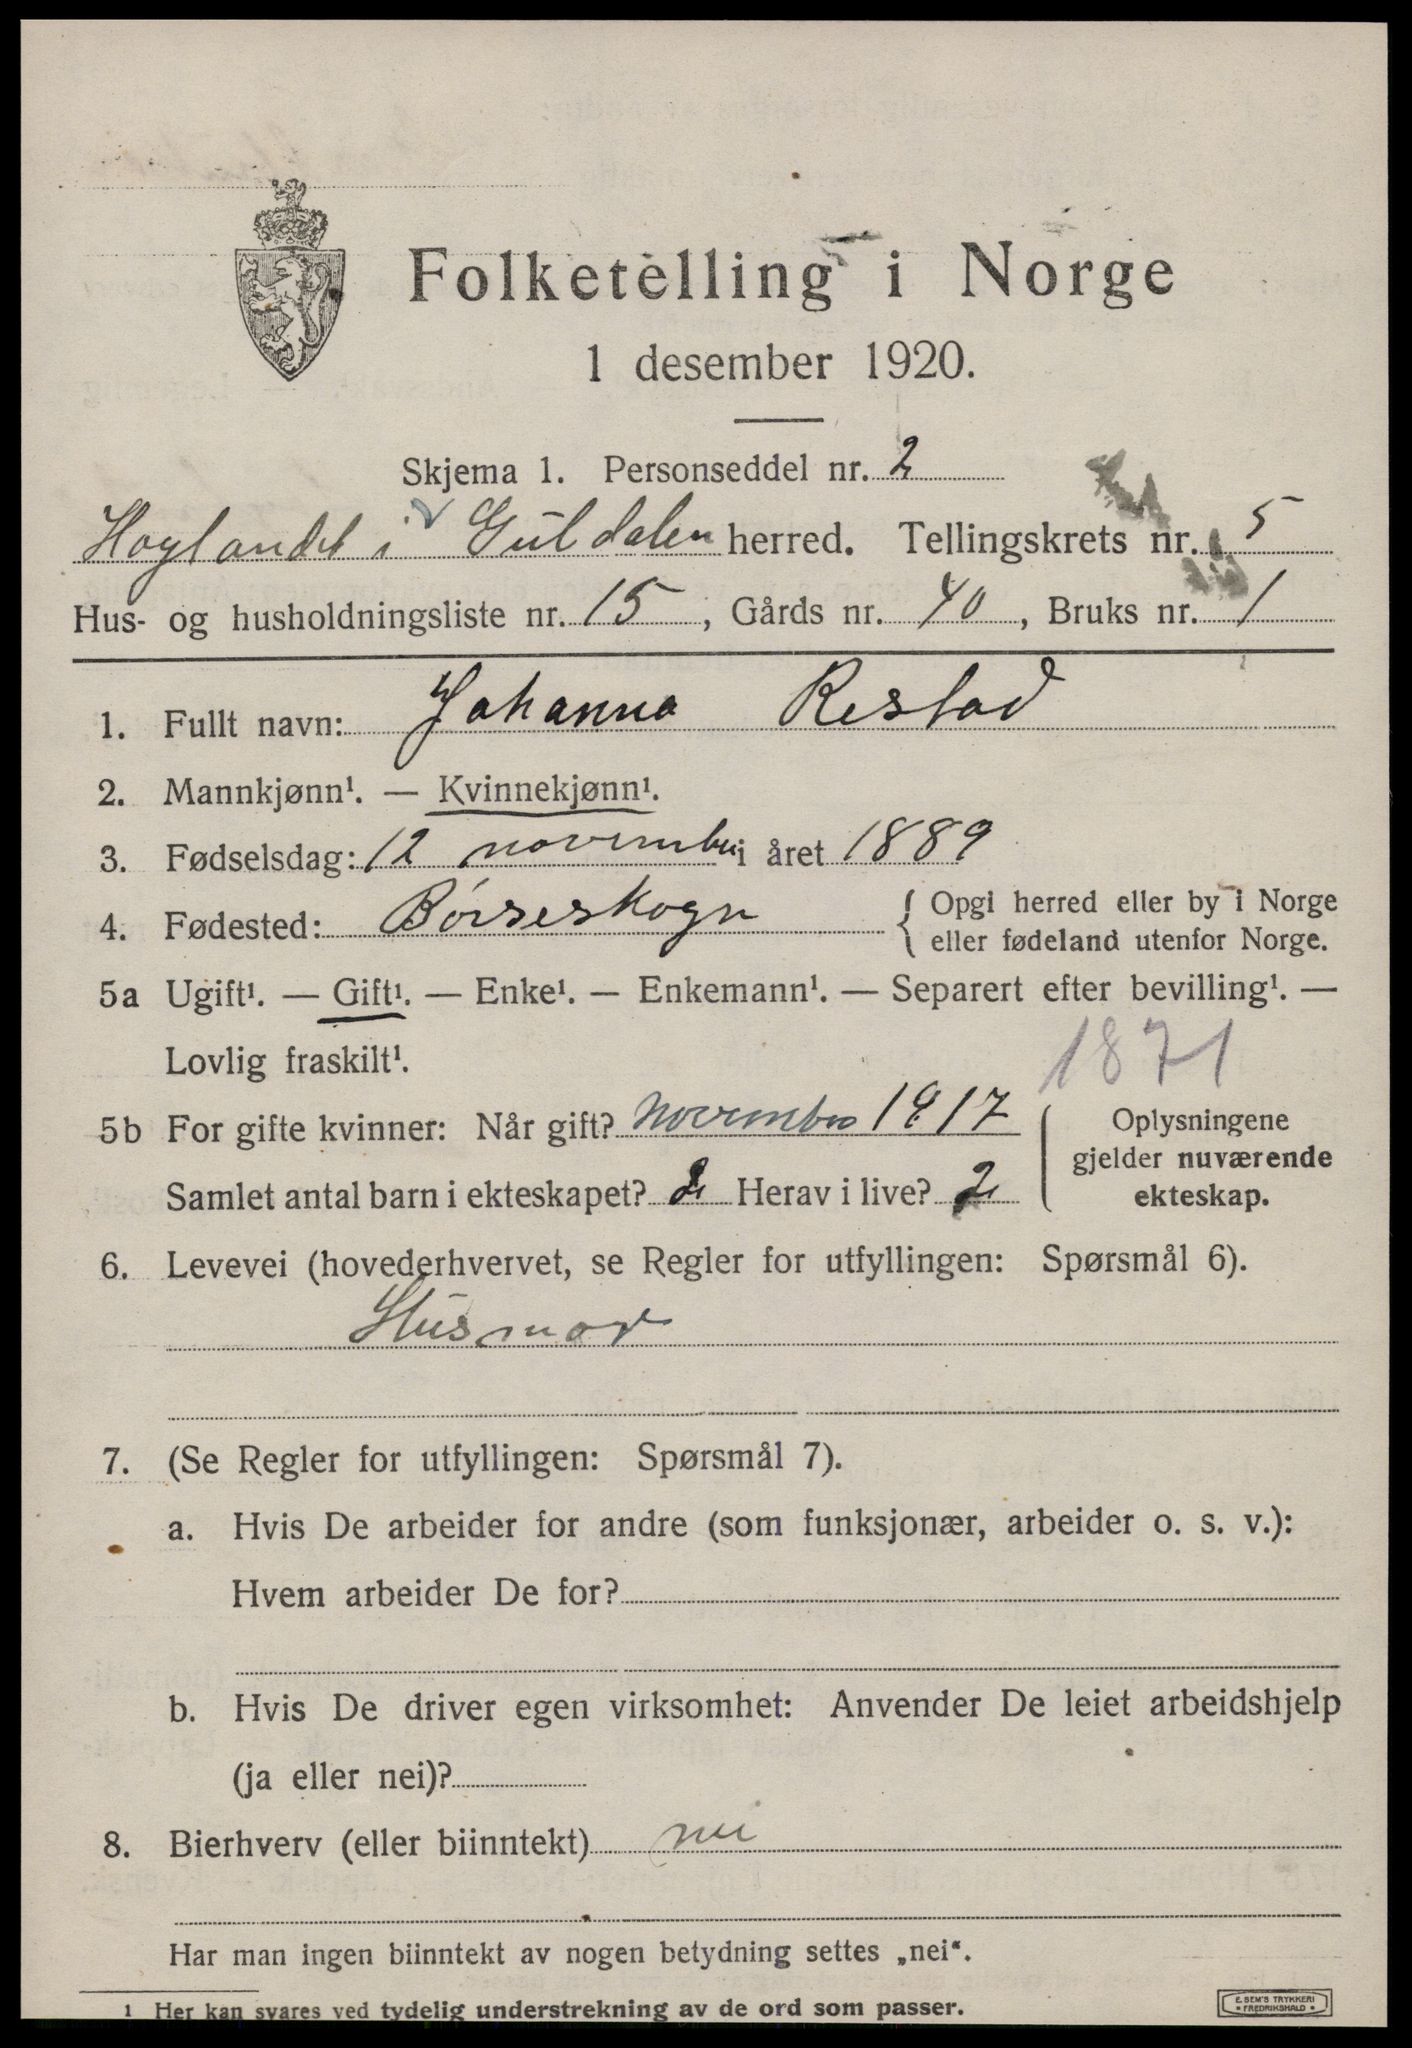 Folketelling i Norge
1 desember 1920.
Skjema 1. Personseddel nr. 2
Høylandet i Guldalen herred. Tellingskrets nr. 5
Hus- og husholdningsliste nr. 15, Gårds nr. 40, Bruks nr. 1
1. Fullt navn: Johanna Restad
2. Mannkjønn¹. — Kvinnekjønn¹.
3. Fødselsdag: 12 november i året 1889
4. Fødested: Børseskogn { Opgi herred eller by i Norge
eller fødeland utenfor Norge.
5a Ugift¹. — Gift¹. — Enke¹. — Enkemann¹. — Separert efter bevilling¹. —
Lovlig fraskilt¹.
1871
5b For gifte kvinner: Når gift? November 1917
Samlet antal barn i ekteskapet? 2 Herav i live? 2
Oplysningene
gjelder nuværende
ekteskap.
6. Levevei (hovederhvervet, se Regler for utfyllingen: Spørsmål 6).
Husmor
7. (Se Regler for utfyllingen: Spørsmål 7).
a. Hvis De arbeider for andre (som funksjonær, arbeider o. s. v.):
Hvem arbeider De for?
b. Hvis De driver egen virksomhet: Anvender De leiet arbeidshjelp
(ja eller nei)?
8. Bierhverv (eller biinntekt) nei
Har man ingen biinntekt av nogen betydning settes „nei“.
¹ Her kan svares ved tydelig understrekning av de ord som passer.
E. SEM'S TRYKKERI
• FREDRIKSHALD •